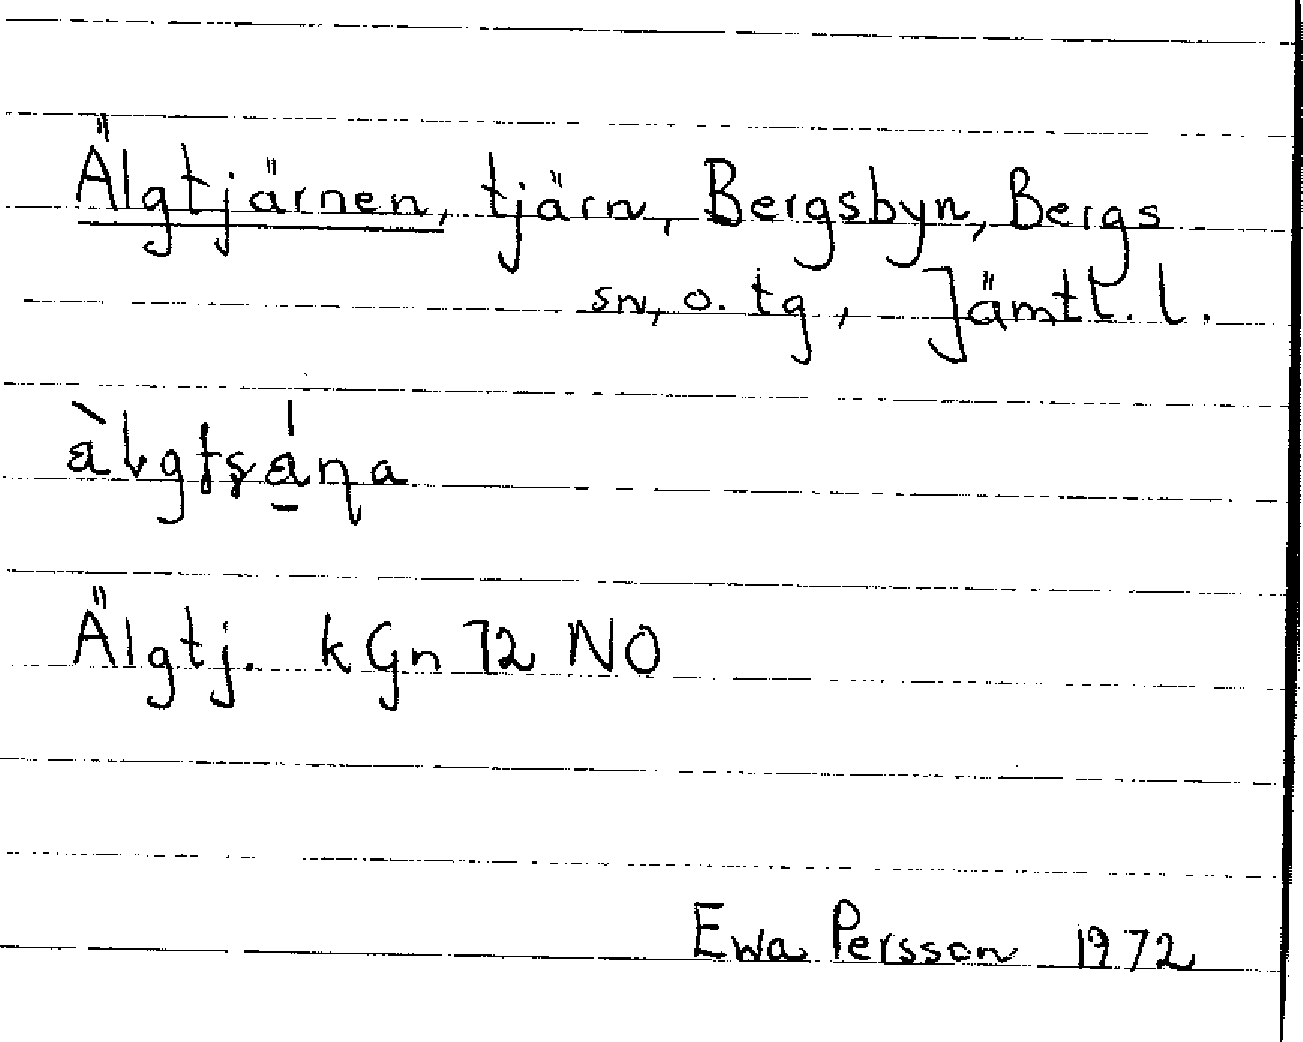 Älgtjärnen, tjärn, Bergsbyn, Bergs
sn, o. tg, Jämtl. l.
Älgtj. kGn 72 NO
Ewa Persson 1972